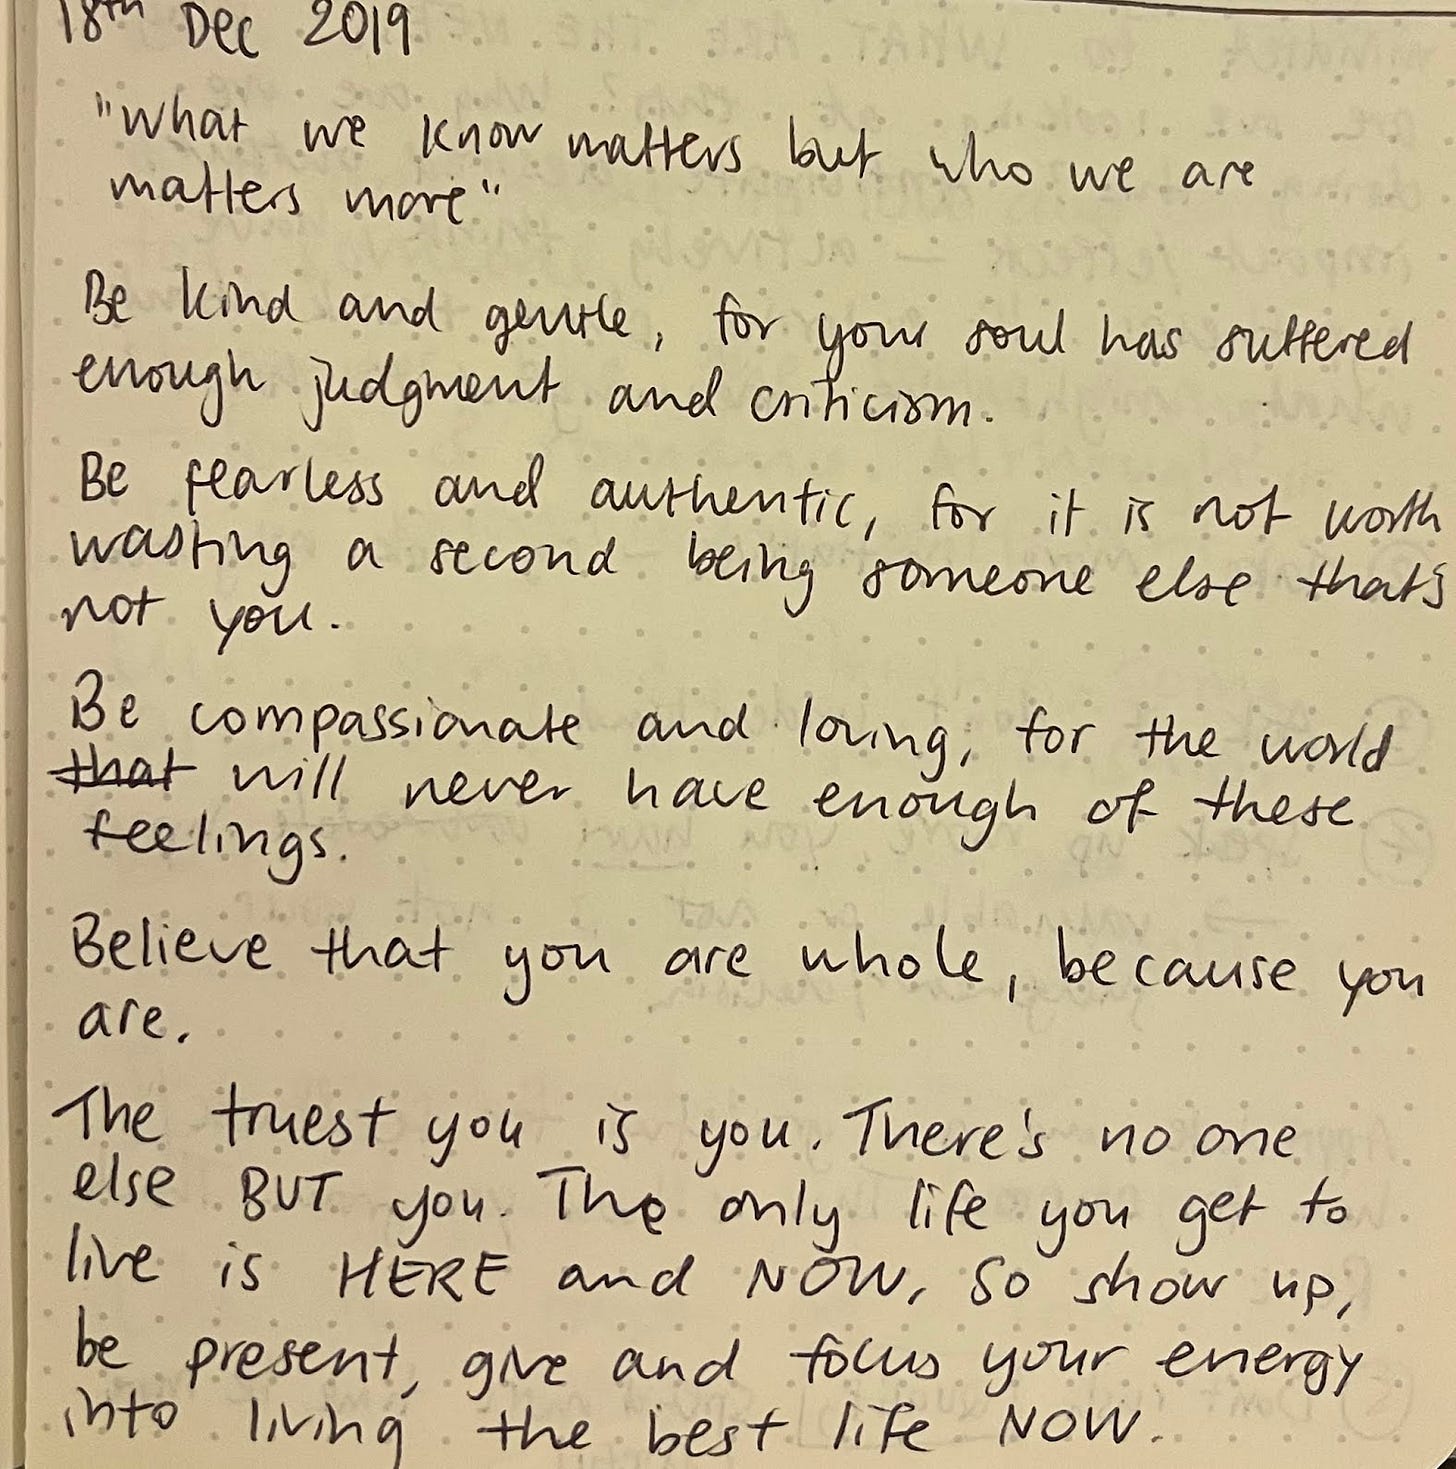 18th Dec 2019
"What we know matters but who we are
matters more"
Be kind and gentle, for your soul has suffered
enough judgment and criticism.
Be fearless and authentic, for it is not worth
wasting a second being someone else that's
not you.
Be compassionate and loving, for the world
that will never have enough of these
feelings.
Believe that you are whole, because you
are.
The truest you is you. There's no one
else BUT you. The only life you get to
live is HERE and NOW. So show up,
be present, give and focus your energy
into living the best life NOW.